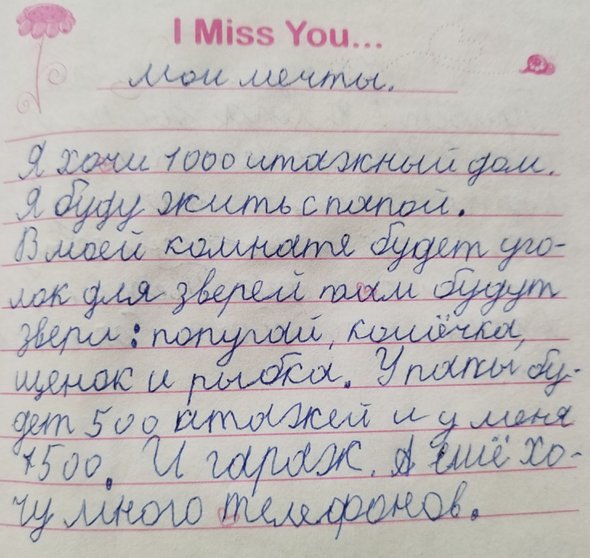 I Miss You...
мои мечты.
Я хочи 1000 итажный дом.
Я буду жить с папой.
В моей комнате будет уго-
лок для зверей там будут
звери: попугай, кошёчка,
щенок и рыбка. У папы бу-
дет 500 итажей и у меня
1500. И гараж. А ешё хо-
чу много телефонов.